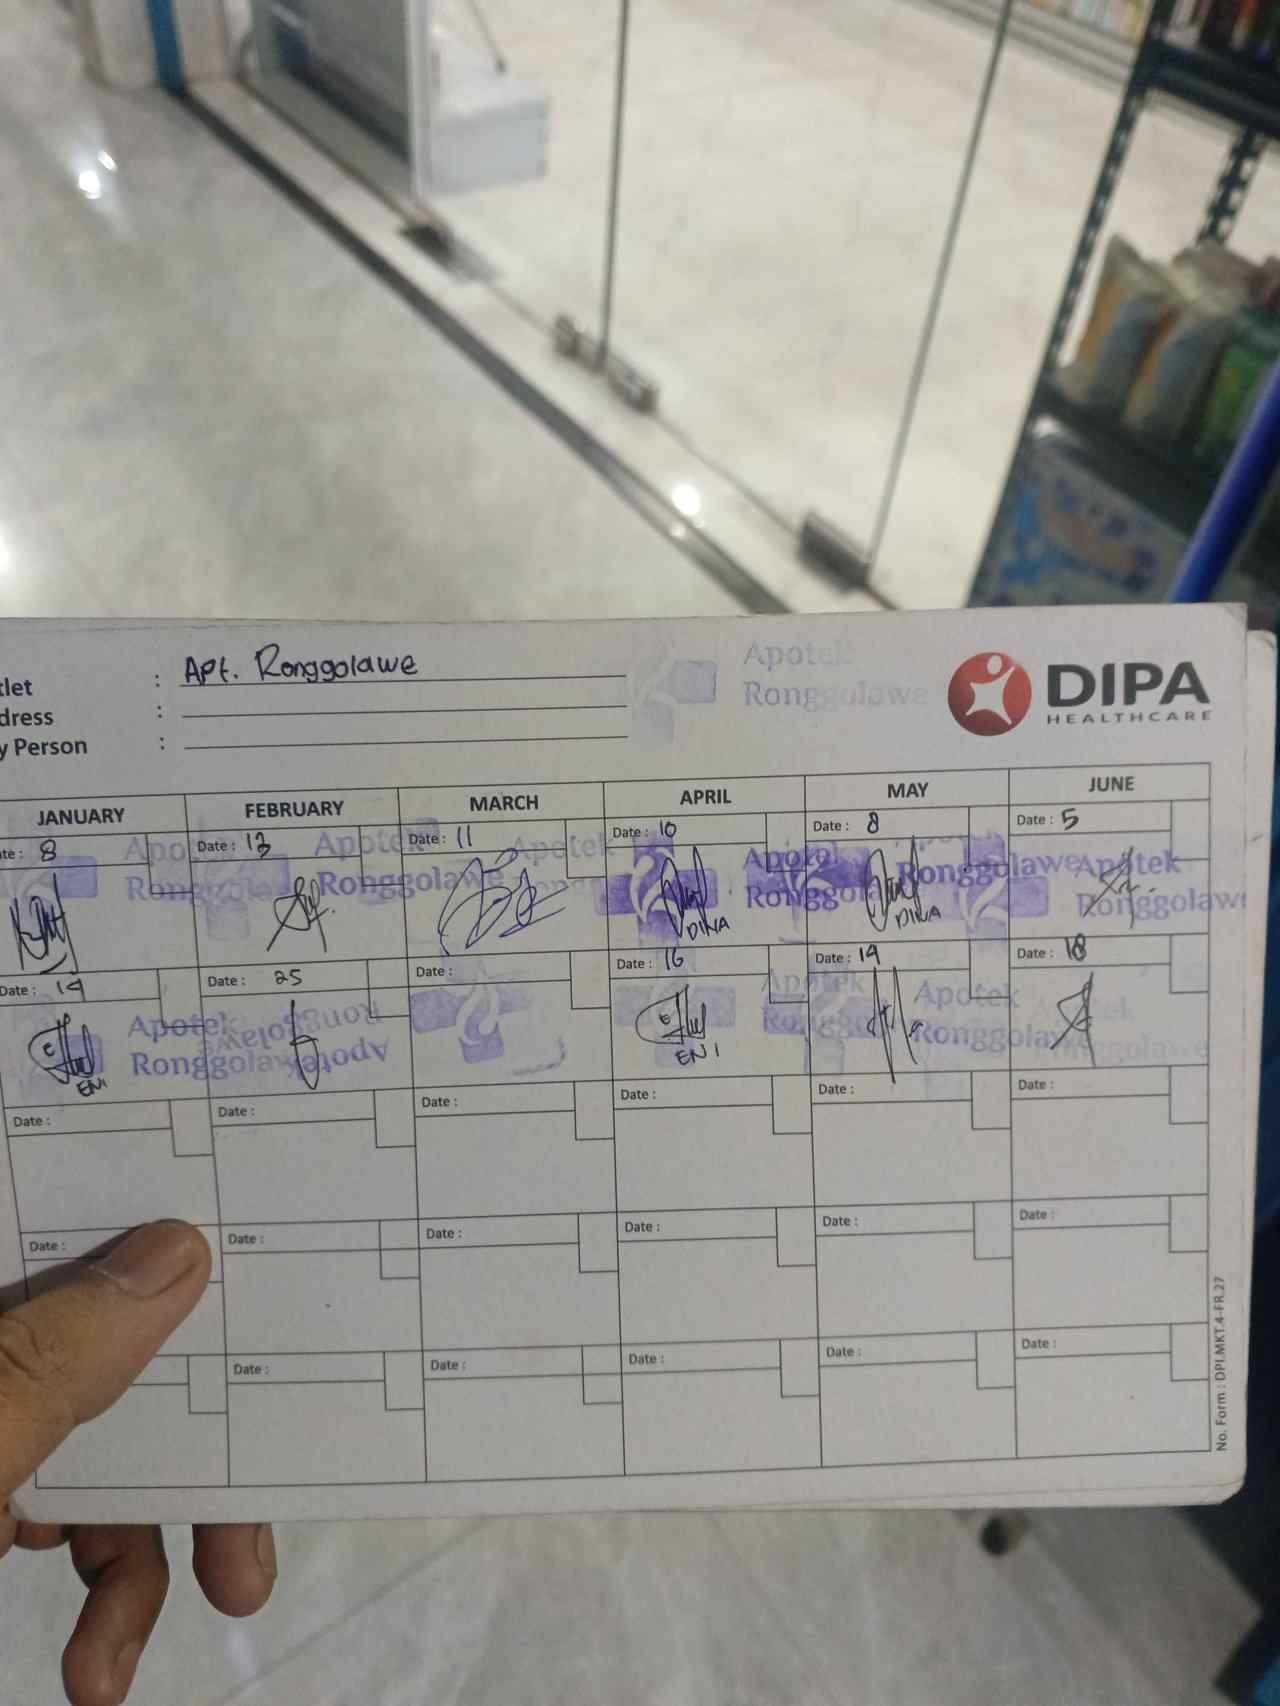 tlet : Apt. Ronggolawe
dress :
y Person :
Apotek
Ronggolawe
DIPA
HEALTHCARE
JANUARY FEBRUARY MARCH APRIL MAY JUNE
te : 8 Date : 13 Date : 11 Date : 10 Date : 8 Date : 5
Apotek Apotek Apotek Apotek Apotek
Ronggolawe Ronggolawe Ronggolawe Ronggolawe Ronggolawe
DINA DINA
Date : 19 Date : 25 Date : Date : 16 Date : 19 Date : 18
Apotek Apotek Apotek Apotek
Ronggolawe Ronggolawe Ronggolawe
ENI ENI
Date : Date : Date : Date : Date : Date :
Date : Date : Date : Date : Date : Date :
Date : Date : Date : Date : Date :
No. Form : DPI.MKT.4-FR.27